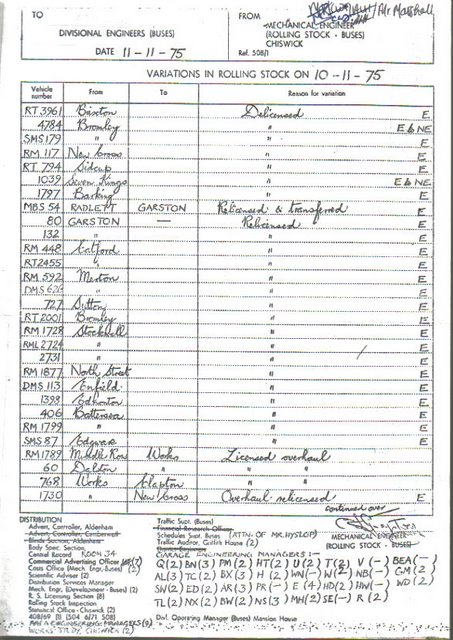 TO
FROM
Mr. Marshall
MECHANICAL ENGINEER
DIVISIONAL ENGINEERS (BUSES)
(ROLLING STOCK - BUSES)
CHISWICK
DATE 11-11-75
Ref. 508/1
VARIATIONS IN ROLLING STOCK ON 10-11-75
Vehicle number From To Reason for variation
RT 3961 Brixton Delicensed E
4784 Bromley " E to NE
SMS 179 " " E
RM 117 New Cross " E
RT 794 Sidcup " E
1039 Seven Kings " E to NE
1797 Barking " E
MBS 54 RADLETT GARSTON Relicensed & transferred E
80 GARSTON — Relicensed E
132 " " E
RM 448 Catford " E
RT2455 " " E
RM 592 Merton " E
DMS 626 " " E
727 Sutton " E
RT 2001 Bromley " E
RM 1728 Stockwell " E
RML 2724 " " E
2731 " " E
RM 1877 North Street " E
DMS 113 Enfield " E
1398 Edmonton " E
406 Battersea " E
RM 1799 " " E
SMS 87 Edgware " E
RM1789 Middle Row Works Licensed overhaul
60 Dalston " " "
768 Works Clapton
1730 " New Cross Overhaul relicensed E
continued over
DISTRIBUTION
Advert, Controller, Aldenham
Advert, Controller, Camberwell
Body Spec. Section,
Central Record ROOM 34
Commercial Advertising Officer (7)
Costs Office (Mech Engr, Buses) (2)
Scientific Adviser (2)
Distribution Services Manager
Mech. Engr, (Development - Buses) (2)
R. S. Licensing Section (8)
Rolling Stock Inspection
Statistical Officer (2)
408/69 (1) (504 671 508)
WORKS STUDY, CHISWICK (2)
Traffic Supt. (Buses)
Financial Research Officer
Schedules Supt. Buses (ATTN. OF MR. HYSLOP)
Traffic Auditor, Griffith House (2)
MECHANICAL ENGINEER
(ROLLING STOCK - BUSES)
GARAGE ENGINEERING MANAGERS :-
Q(2) BN(3) PM(2) HT(2) U(2) T(2) V(-) BEA(-)
AL(3) TC(2) BX(3) H(2) WN(-) W(2) NB(-) CM(2)
SW(2) ED(2) AR(3) PR(-) E(4) HD(2) HW(-) WD(2)
TL(2) NX(2) BW(2) NS(3) MH(2) SE(-) R(2)
Divl. Operating Manager (Buses) Mansion House